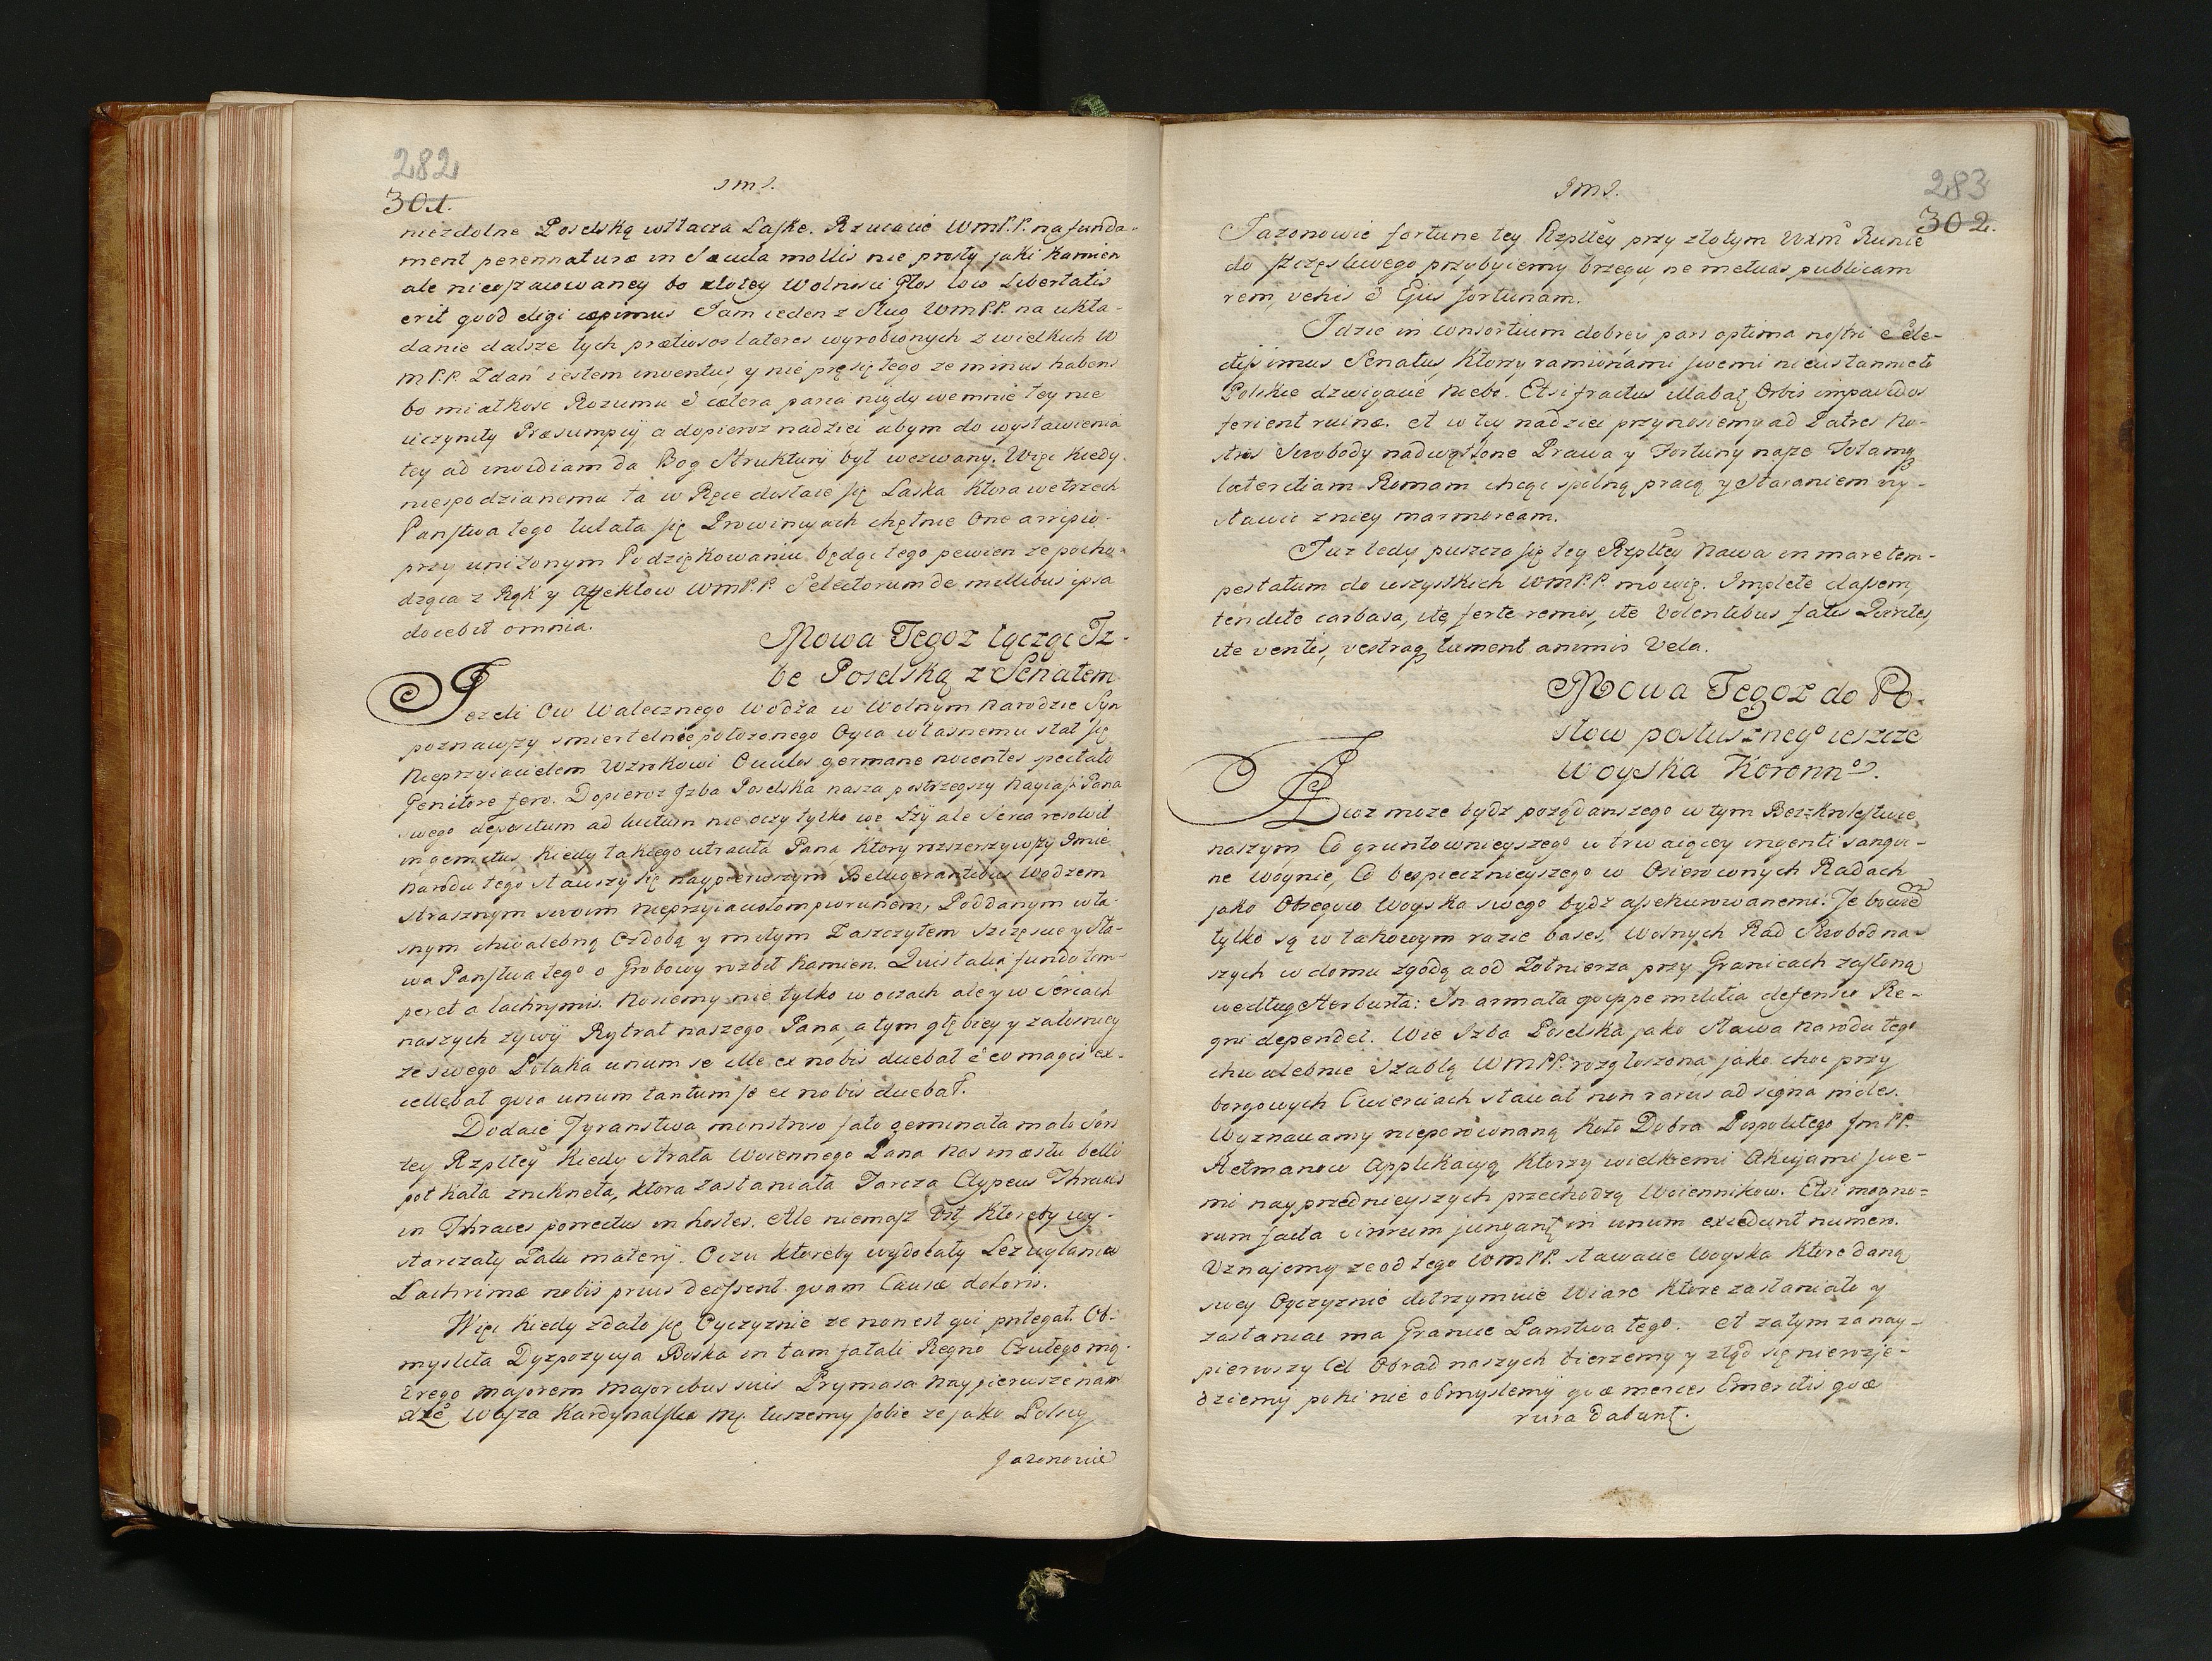 282
301.
JmJ.
niezdolne Poselską wtłacza Laskę. Rzucacie WmP.P. na funda-
ment perennaturæ in Sæcula mollis nie prosty jaki kamien
ale nieopracowaney bo złotey Wolnosci Głos loco Libertatis
erit quod eligi cæpimus Jam ieden z Sług WmP.P. na ukła-
danie dalsze tych prætiosos lateres wyrobionych z wielkich W
mP.P. Zdań iestem inventus, y nie prę się tego ze minus habens
bo miałkosc Rozumu & cætera paria nigdy we mnie tey nie
uczyniły Præsumpcij a dopieroz nadziei abym do wystawienia
tey ad invidiam da Bog Struktury był wezwany. Więc kiedy
niespodzianemu ta w Ręce dostaie się Laska ktora we trzech
Panstwa tego tułała się Prowincyach chętnie One arripio
przy uniżonym Podziękowaniu będąc tego pewien ze pocho-
dząca z Rąk y affektow WmP.P. Selectorum de millibus ipsa
docebit omnia.
Mowa Tegoz łącząc Iz-
be Poselską z Senatem
Jezeli Ow Walecznego Wodza w Wolnym Narodzie Syn
poznawszy smiertelnie położonego Oyca własnemu stał się
Nieprzyiacielem Wzrokowi Oculos germane nocentes spectato
Genitore fero. Dopieroz Jzba Poselska nasza postrzegszy Nayias: Pana
swego depositum ad luctum nie oczy tylko we Łzy ale Serca resolvit
in gemitus, kiedy takiego utraciła Pana ktory rozszerzywszy Imie
Narodu tego stawszy się naypierwszym Belligerantibus Wodzem
strasznym swoim nieprzyiaciołom piorunem, Poddanym wła-
snym chwalebną Ozdobą y miłym Zaszczytem szczęscie y Sła-
wa Panstwa tego o Grobowy rozbił Kamien. Quis talia fundo tem-
peret a lachrymis. Nosiemy nie tylko w oczach ale y w Sercach
naszych zywy Rytrat naszego Pana, a tym głębiey y załosniey
ze swego Polaka unum se ille ex nobis ducebat & eo magis ex-
cellebat quia unum tantum se ex nobis ducebat.
Dodaie Tyranstwa monstroso fato geminata malo Sors
tey Rzpltey kiedy strata Woiennego Pana nas in æstu belli
potkała zniknęła, ktora zasłaniała Tarcza Clypeus Thracis
in Thraces porrectus in hostes. Ale niemasz Ust ktoreby wy-
starczały Zalu materij. Oczu ktoreby wydołały Łez wylaniu
Lachrimæ nobis prius deessent quam Causæ doloris.
Więc kiedy zdało się Oyczyznie ze non est qui protegat. Ob-
mysliła Dyzpozycya Boska in tam fatali Regno Czułego mą-
drego majorem majoribus suis Prymasa Naypierwsze nam
dże Wasza Kardynalska Mć tuszemy sobie ze jako Polscy
Jazonowie
283
302.
JmJ.
Jazonowie fortune tey Rzpltey przy złotym Wxm Runie
do szczęsliwego przybyiemy brzegu, ne metuas publicam
rem, vehis & Ejus fortunam.
Idzie in consortium dobrey pars optima nostri e Cele-
tissimus Senatus ktorzy ramionami swemi nieustannie to
Polskie dzwigacie Niebo. Etsi fractus illabat Orbis impavidos
ferient ruinæ. et w tey nadziei przynosiemy ad Patres No-
stros Swobody nadwątlone Prawa y Fortuny nasze Totamq
lateritiam Romam chcąc spolną pracą y staraniem wy-
stawic z niey marmoream.
Juz tedy puszcza się tey Rzpltey Nawa in mare tem-
pestatum do wszystkich WmP.P. mowię. Implete classem,
tendite carbasa, ite ferte remos, ite Volentibus fatis Quirites,
ite ventis, vestraq tument animis Vela.
Mowa Tegoz do Po-
słow posłusznego ieszcze
Woyska Koronno.
Coz moze bydz pożądanszego w tym Bezkrolestwie
naszym, Co gruntownieyszego w trwaiącey ingenti sangvi-
ne woynie, Co bespiecznieyszego w Osierownych Radach
jako Obsegvio Woyska swego bydź assekurowanemi: Te bowiem
tylko są w takowym razie bases, Wolnych Rad Swobod na-
szych w domu zgodą a od Żołnierza przy Granicach zasłoną
według Herburta: In armata quippe militia defensio Re-
gni dependet. Wie Izba Poselska jako sława Narodu tego
chwalebnie Szablą WMPP: rozgłoszona, jako choc przy
borgowych Cwierciach stawał non rarus ad signa miles.
Wyznawamy nieporownaną koło Dobra Pospolitego JmPP.
Hetmanow Applikacyą ktorzy wielkiemi Akcyami swe-
mi nayprzednieyszych przechodzą Woiennikow. Etsi magno-
rum facta virorum jungant in unum excedunt numen.
Uznajemy ze od tego WmPP. stawacie Woyska ktore daną
swey Oyczyznie dotrzymuie Wiarę ktore zasłaniało y
zasłaniac ma Granice Panstwa tego. et zatym za nay-
pierwszy Cel Obrad naszych bierzemy y ztąd się nie rozje-
dziemy poki nie obmyslemy quæ merces Emeritis quæ
rura dabunt.